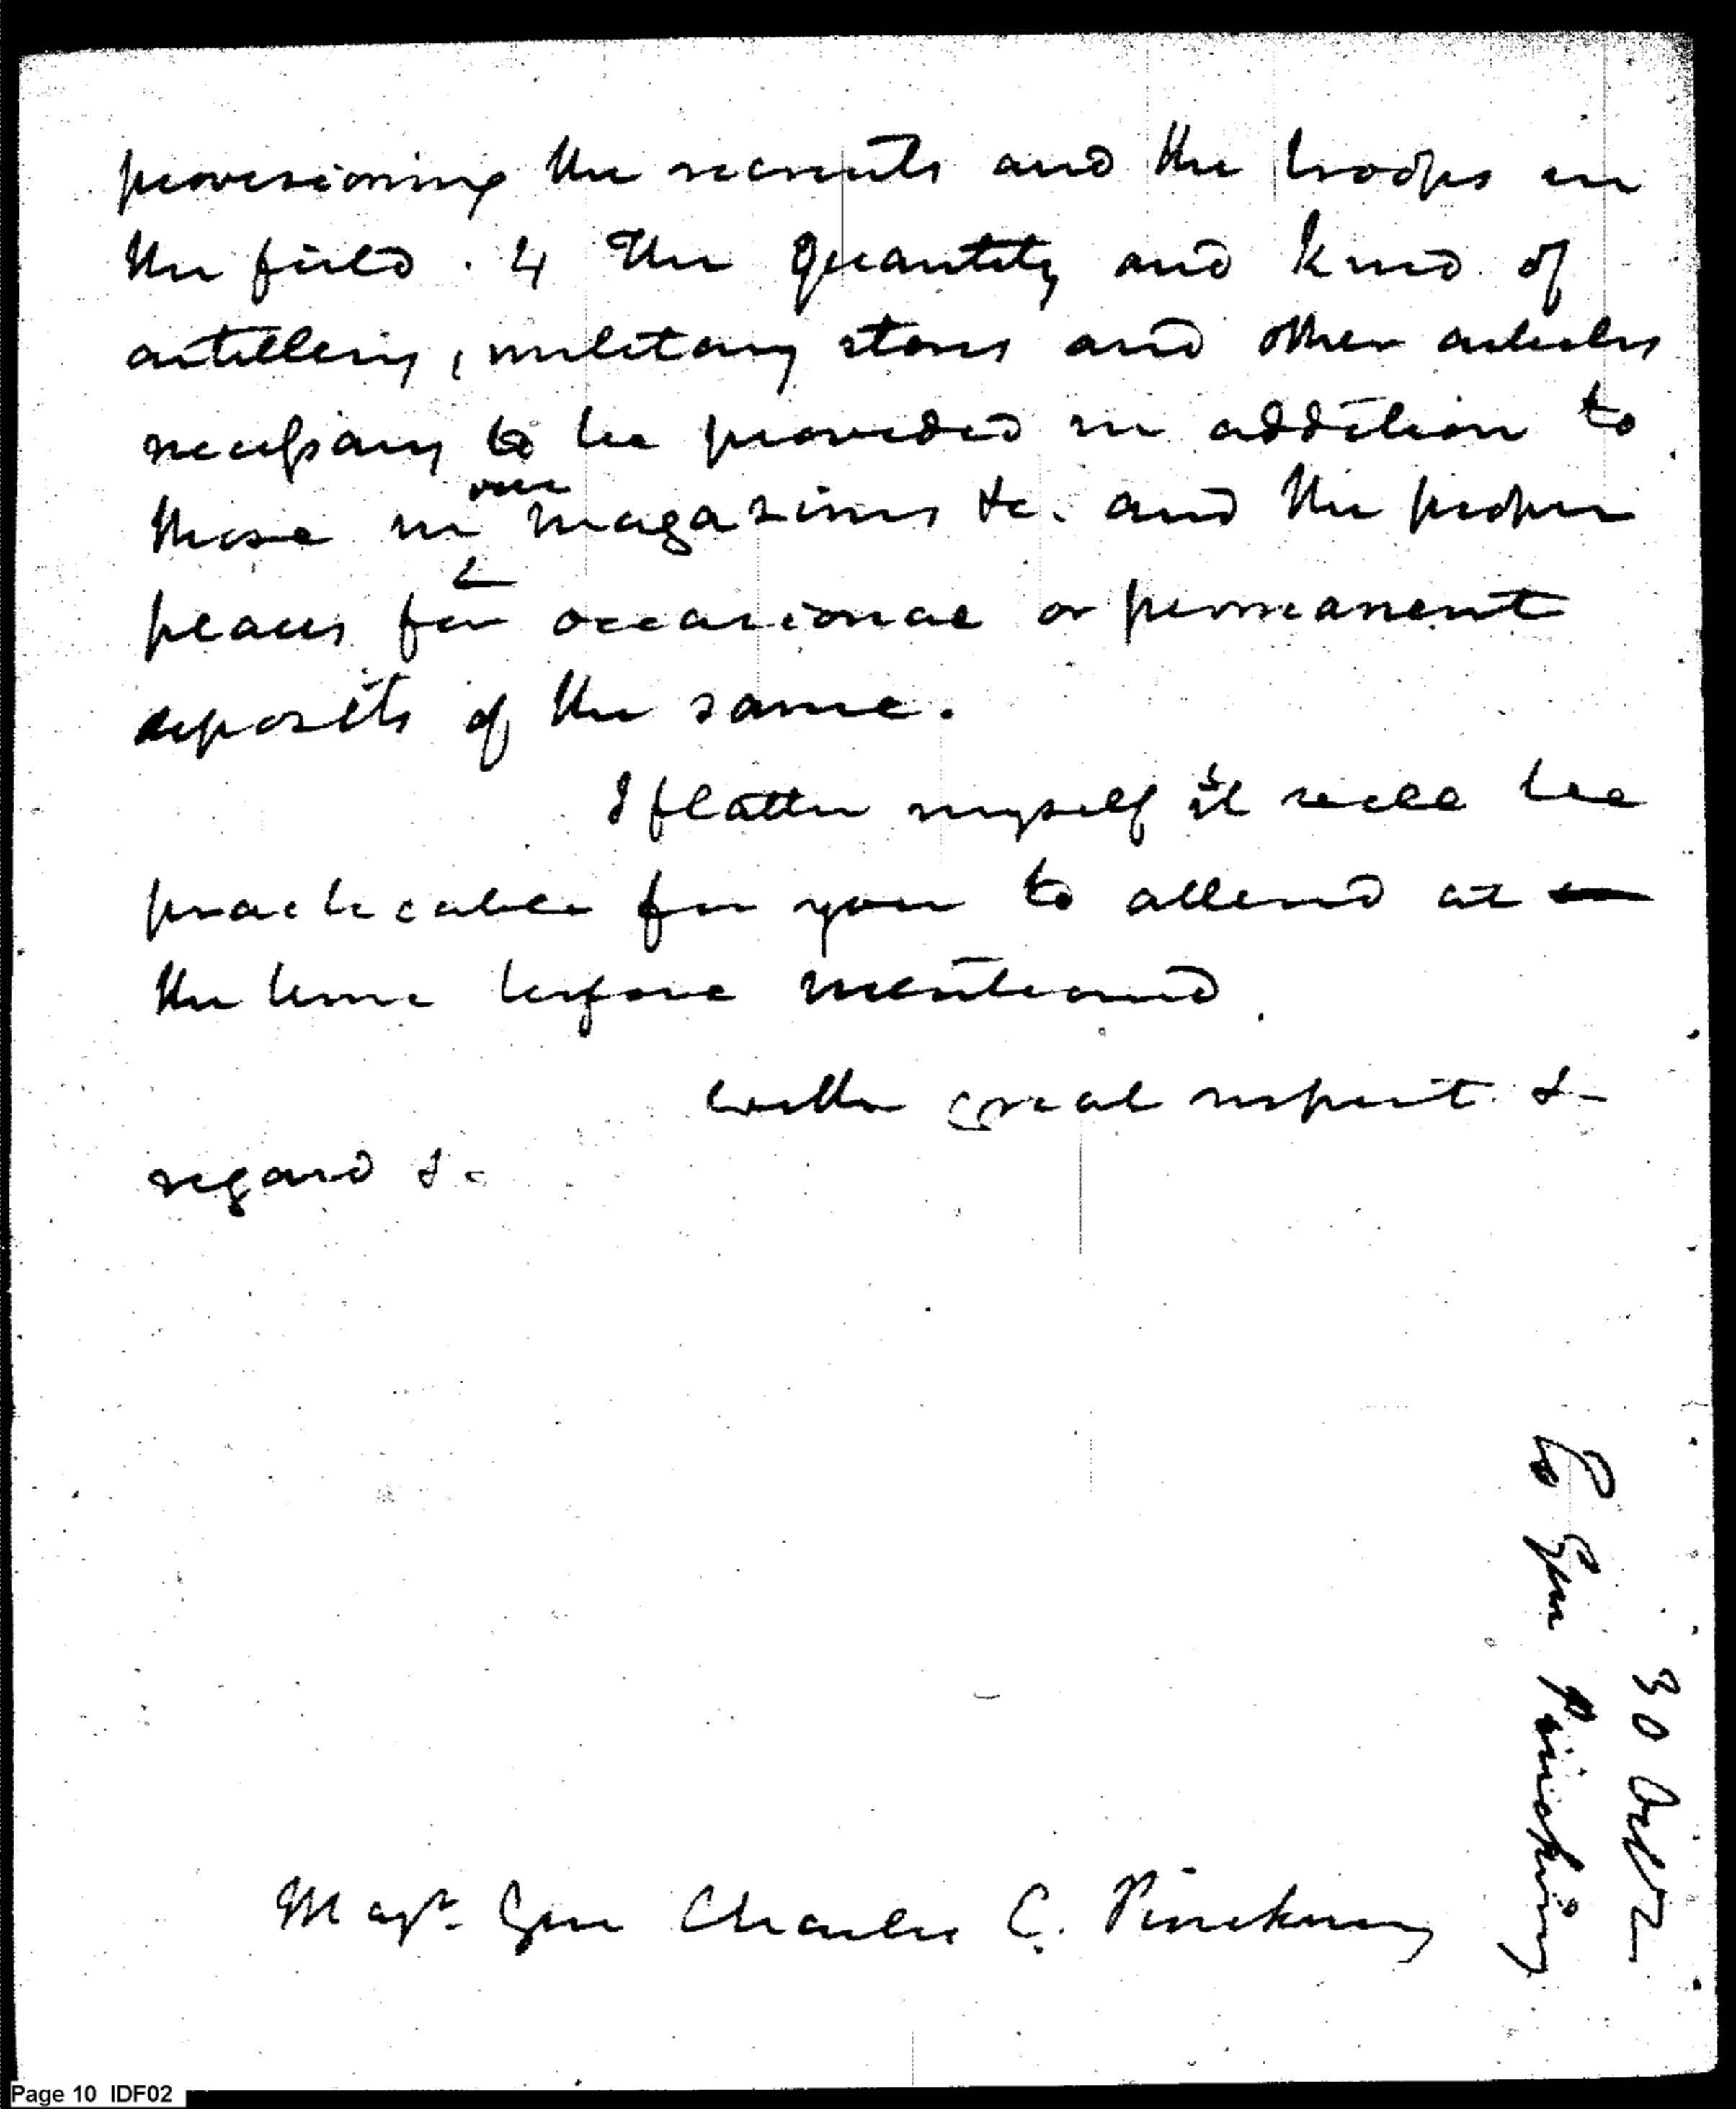 provisioning the recruits and the troops in
the field. 4 The quantity and kind of
artillery, military stores and other articles
necessary to be provided in addition to
those in our magazines &c. and the proper
places for occasional or permanent
deposits of the same.
I flatter myself it will be
practicable for you to attend at
the time before mentioned
with great respect &
regard &c
Majr. Gen Charles C. Pinckney
To Gen Pinckney
30 Octr
Page 10 IDF02